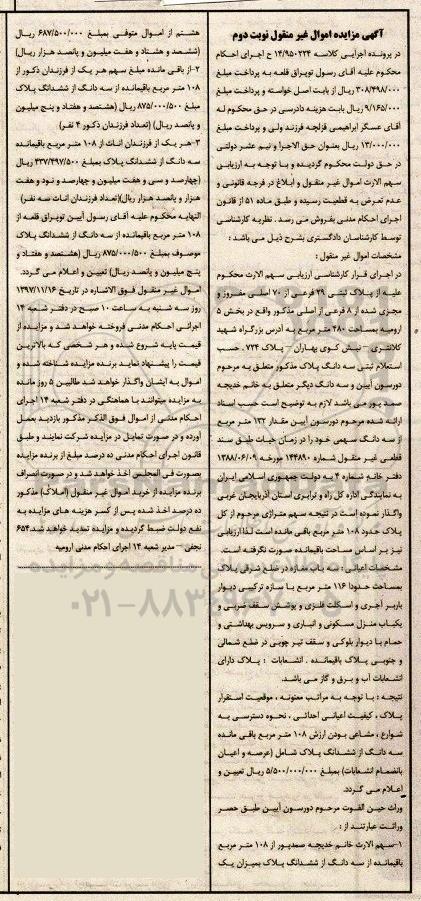 آگهی مزایده اموال غیر منقول نوبت دوم
در پرونده اجرایی کلاسه ۱۴/۹۵۰۲۲۴ ح اجرای احکام
محکوم علیه آقای رسول توپراق قلعه به پرداخت مبلغ
۳۰۸/۴۹۸/۰۰۰ ریال از بابت اصل خواسته و پرداخت مبلغ
۹/۱۶۵/۰۰۰ ریال بابت هزینه دادرسی در حق محکوم له
آقای عسگر ابراهیمی قزلچه فرزند ولی و پرداخت مبلغ
۱۳/۰۰۰/۰۰۰ ریال بعنوان حق الاجرا و نیم عشر دولتی
در حق دولت محکوم گردیده و با توجه به ارزیابی
سهم الارث اموال غیر منقول و ابلاغ در فرجه قانونی و
عدم تعرض به قطعیت رسیده و طبق ماده ۵۱ از قانون
اجرای احکام مدنی بفروش می رسد. نظریه کارشناسی
توسط کارشناسان دادگستری بشرح ذیل می باشد :
مشخصات اموال غیر منقول :
در اجرای قرار کارشناسی ارزیابی سهم الارث محکوم
علیه از پلاک ثبتی ۲۹ فرعی از ۷۰ اصلی مفروز و
مجزی شده از ۸ فرعی از اصلی مذکور واقع در بخش ۵
ارومیه بمساحت ۴۸۰ متر مربع به آدرس بزرگراه شهید
کلانتری - نبش کوی بهاران - پلاک ۷۲۴ . حسب
استعلام ثبتی سه دانگ پلاک مذکور متعلق به مرحوم
دورسون آیین و سه دانگ دیگر متعلق به خانم خدیجه
صمد پور می باشد لازم به توضیح است حسب اسناد
ارائه شده مرحوم دورسون آیین مقدار ۱۳۲ متر مربع
از سه دانگ سهمی خود را در زمان حیات طبق سند
قطعی غیر منقول شماره ۱۴۴۸۹۰ مورخه ۱۳۸۸/۰۶/۰۹
دفتر خانه شماره ۴ به دولت جمهوری اسلامی ایران
به نمایندگی اداره کل راه و ترابری استان آذربایجان غربی
واگذار نموده است در نتیجه سهم متراژی مرحوم از کل
پلاک حدود ۱۰۸ متر مربع باقی مانده است لذا ارزیابی
نیز بر اساس مساحت باقیمانده صورت نگرفته است.
مشخصات اعیانی : سه باب مغازه در ضلع شرقی پلاک
بمساحت حدودا ۱۱۶ متر مربع با سازه ترکیبی دیوار
باربر آجری و اسکلت فلزی و پوشش سقف ضربی و
یکباب منزل مسکونی و انباری و سرویس بهداشتی و
حمام با دیوار بلوکی و سقف تیر چوبی در ضلع شمالی
و جنوبی پلاک باقیمانده . انشعابات : پلاک دارای
انشعابات آب و برق و گاز می باشد.
نتیجه : با توجه به مراتب معنونه ، موقعیت استقرار
پلاک ، کیفیت اعیانی احداثی ، نحوه دسترسی به
شوارع ، مشاعی بودن ارزش ۱۰۸ متر مربع باقی مانده
سه دانگ از ششدانگ پلاک شامل (عرصه و اعیان
بانضمام انشعابات) بمبلغ ۵/۵۰۰/۰۰۰/۰۰۰ ریال تعیین و
اعلام می گردد.
وراث حین الفوت مرحوم دورسون آیین طبق حصر
وراثت عبارتند از :
۱-سهم الارث خانم خدیجه صمدپور از ۱۰۸ متر مربع
باقیمانده از سه دانگ از ششدانگ پلاک بمیزان یک
هشتم از اموال متوفی بمبلغ ۶۸۷/۵۰۰/۰۰۰ ریال
(ششصد و هشتاد و هفت میلیون و پانصد هزار ریال)
۲-از باقی مانده مبلغ سهم هر یک از فرزندان ذکور از
۱۰۸ متر مربع باقیمانده از سه دانگ از ششدانگ پلاک
مبلغ ۸۷۵/۰۰۰/۵۰۰ ریال (هشتصد و هفتاد و پنج میلیون
و پانصد ریال) (تعداد فرزندان ذکور ۴ نفر)
۳-هر یک از فرزندان اناث از ۱۰۸ متر مربع باقیمانده
سه دانگ از ششدانگ پلاک بمبلغ ۴۳۷/۴۹۷/۵۰۰ ریال
(چهارصد و سی و هفت میلیون و چهارصد و نود و هفت
هزار و پانصد هزار ریال)(تعداد فرزندان اناث سه نفر)
النهایه محکوم علیه آقای رسول آیین توپراق قلعه از
۱۰۸ متر مربع باقیمانده از سه دانگ از ششدانگ پلاک
موصوف بمبلغ ۸۷۵/۰۰۰/۵۰۰ ریال (هشتصد و هفتاد و
پنج میلیون و پانصد ریال) تعیین و اعلام می گردد.
اموال غیر منقول فوق الاشاره در تاریخ ۱۳۹۷/۱۱/۱۶
روز سه شنبه به ساعت ۱۰ صبح در دفتر شعبه ۱۴
اجرائی احکام مدنی فروخته خواهد شد و مزایده از
قیمت پایه شروع شده و هر شخصی که بالاترین
قیمت را پیشنهاد نماید برنده مزایده شناخته شده و
اموال به ایشان واگذار خواهد شد طالبین ۵ روز مانده
به مزایده میتوانند با هماهنگی در دفتر شعبه ۱۴ اجرای
احکام مدنی از اموال فوق الذکر مذکور بازدید بعمل
آورده و در صورت تمایل در مزایده شرکت نمایند و طبق
قانون اجرای احکام مدنی ده درصد مبلغ از برنده مزایده
بصورت فی المجلس اخذ خواهد شد و در صورت انصراف
برنده مزایده از خرید اموال غیر منقول (املاک) مذکور
ده درصد اخذ شده پس از کسر هزینه های مزایده به
نفع دولت ضبط گردیده و مزایده تمدید خواهد شد.۶۵۴
نجفی - مدیر شعبه ۱۴ اجرای احکام مدنی ارومیه
۰۲۱-۸۸۳۴۹۶۷۰-۵